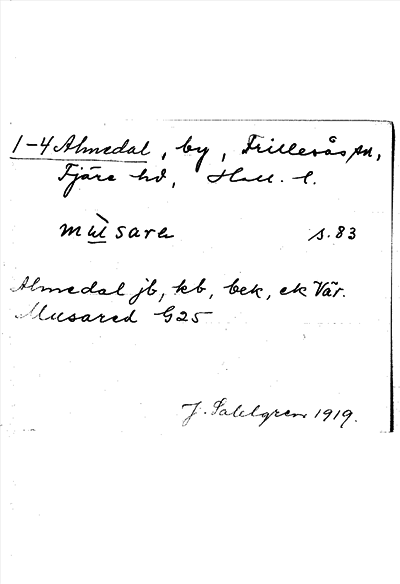 1-4 Almedal, by, Frillesås sn,
Fjäre hd, Hall. l.
mùsare s. 83
Almedal jb, kb, bek, ek Vär.
Musared G25
J. Sahlgren 1919.